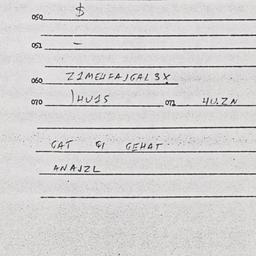 050 $
051 -
060 Z1MEHFAJGAL3X
070 1HU1S 071 4U.ZN
GAT GI GEHAT
ANAJZL